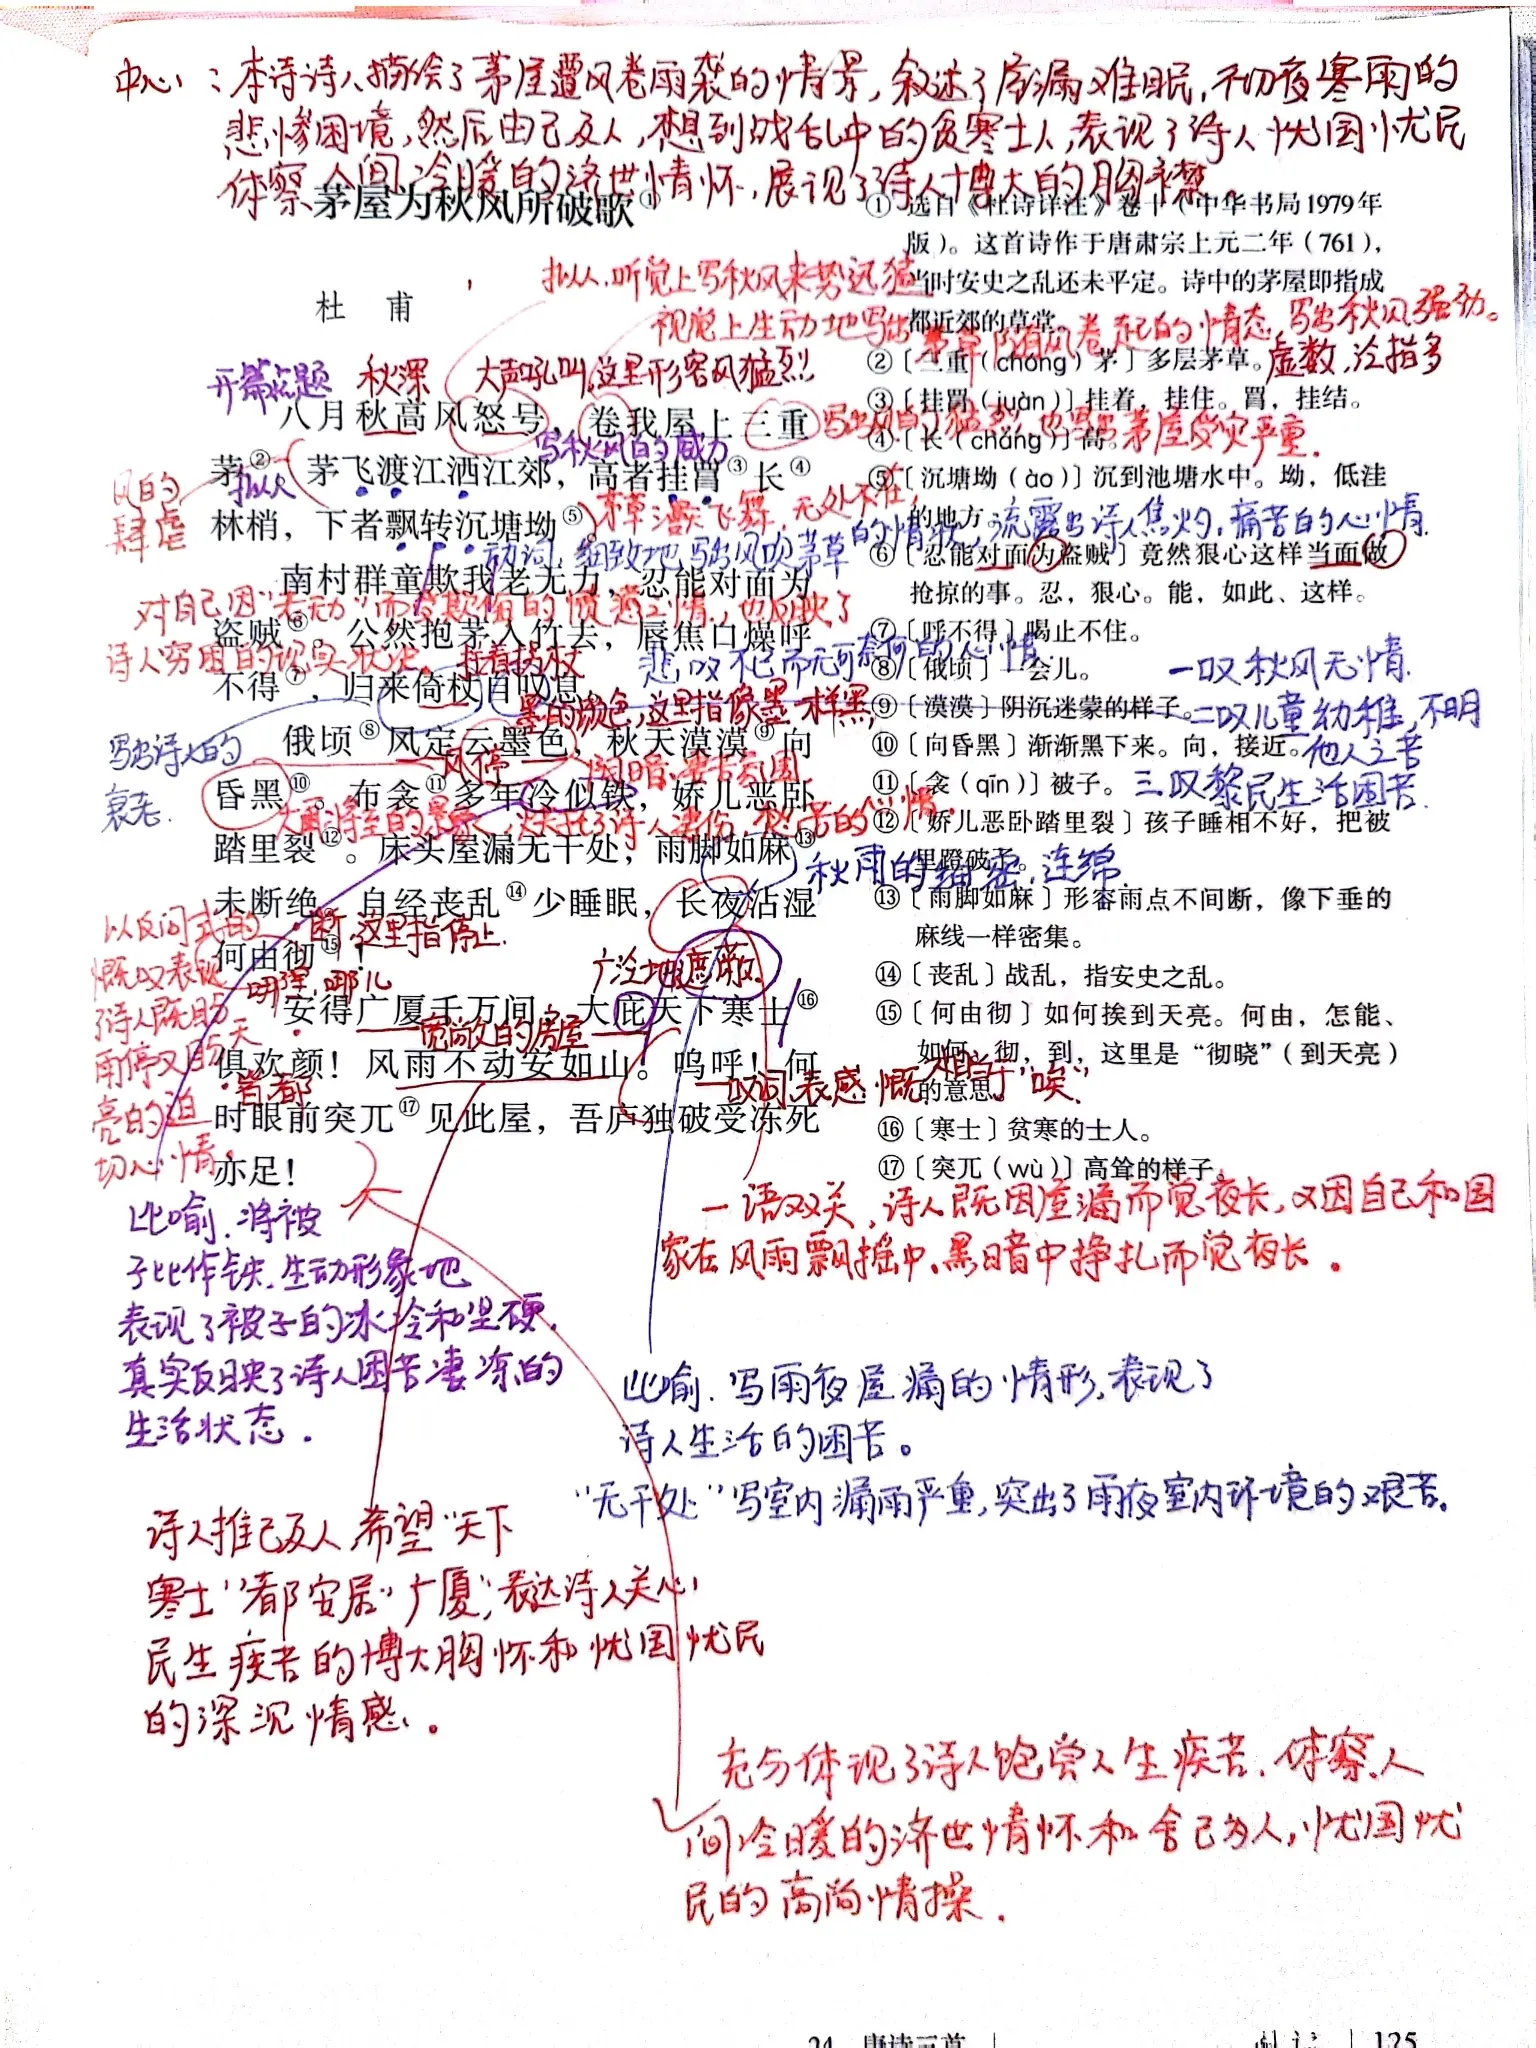 中心：本诗诗人描绘了茅屋遭风卷雨袭的情景，叙述了屋漏难眠，彻夜寒雨的
悲惨困境，然后由己及人，想到战乱中的贫寒士人，表现了诗人忧国忧民
体察人间冷暖的济世情怀，展现了诗人博大的胸襟。
茅屋为秋风所破歌①
杜 甫
拟人.听觉上写秋风来势迅猛
视觉上生动地写出茅草随风卷起的情态，写出秋风强劲。
开篇点题 秋深 大声吼叫，这里形容风猛烈
八月秋高风怒号，卷我屋上三重
写秋风的威力
茅②。茅飞渡江洒江郊，高者挂罥③长④
风的
肆虐
拟人
林梢，下者飘转沉塘坳⑤。
茅草漫天飞舞，无处不在，
动词，细致地写出风吹茅草的情状，流露出诗人焦灼，痛苦的心情.
南村群童欺我老无力，忍能对面为
对自己因“老无力”而受欺侮的愤懑之情，也反映了
盗贼⑥。公然抱茅入竹去，唇焦口燥呼
诗人穷困的现实状况。 拄着拐杖 悲叹不已而无可奈何的心情
不得⑦，归来倚杖自叹息。
墨的颜色，这里指像墨一样黑，
写出诗人的
衰老.
俄顷⑧风定云墨色，秋天漠漠⑨向
风停
昏黑⑩。布衾⑪多年冷似铁，娇儿恶卧
踏里裂⑫。床头屋漏无干处，雨脚如麻⑬
秋雨的细密，连绵
未断绝。自经丧乱⑭少睡眠，长夜沾湿
断，这里指停止.
何由彻⑮！
以反问式的
慨叹表现
了诗人既盼
雨停又盼天
亮的迫
切心情。
哪里，哪儿
广泛地遮蔽.
安得广厦千万间，大庇天下寒士⑯
宽敞的房屋
俱欢颜！风雨不动安如山。呜呼！何
皆，都
叹词，表感慨，相当于“唉”.
时眼前突兀⑰见此屋，吾庐独破受冻死
亦足！
① 选自《杜诗详注》卷十（中华书局1979年
版）。这首诗作于唐肃宗上元二年（761），
当时安史之乱还未平定。诗中的茅屋即指成
都近郊的草堂。
②〔三重（chóng）茅〕多层茅草。
虚数，泛指多
③〔挂罥（juàn）〕挂着，挂住。罥，挂结。
④〔长（cháng）〕高。
⑤〔沉塘坳（ào）〕沉到池塘水中。坳，低洼
的地方。
⑥〔忍能对面为盗贼〕竟然狠心这样当面做
抢掠的事。忍，狠心。能，如此、这样。
⑦〔呼不得〕喝止不住。
⑧〔俄顷〕一会儿。
一叹秋风无情.
⑨〔漠漠〕阴沉迷蒙的样子。
二叹儿童幼稚，不明
⑩〔向昏黑〕渐渐黑下来。向，接近。
他人之苦
⑪〔衾（qīn）〕被子。
三叹黎民生活困苦.
⑫〔娇儿恶卧踏里裂〕孩子睡相不好，把被
里蹬破了。
⑬〔雨脚如麻〕形容雨点不间断，像下垂的
麻线一样密集。
⑭〔丧乱〕战乱，指安史之乱。
⑮〔何由彻〕如何挨到天亮。何由，怎能、
如何。彻，到，这里是“彻晓”（到天亮）
的意思。
⑯〔寒士〕贫寒的士人。
⑰〔突兀（wù）〕高耸的样子。
一语双关，诗人既因屋漏而觉夜长，又因自己和国
家在风雨飘摇中、黑暗中挣扎而觉夜长.
比喻.将被
子比作铁，生动形象地
表现了被子的冰冷和坚硬，
真实反映了诗人困苦凄凉的
生活状态.
比喻.写雨夜屋漏的情形，表现了
诗人生活的困苦。
“无干处”写室内漏雨严重，突出了雨夜室内环境的艰苦。
诗人推己及人，希望“天下
寒士”都安居“广厦”，表达诗人关心
民生疾苦的博大胸怀和忧国忧民
的深沉情感。
充分体现了诗人饱尝人生疾苦.体察人
间冷暖的济世情怀和舍己为人，忧国忧
民的高尚情操.
24 唐诗三首
125